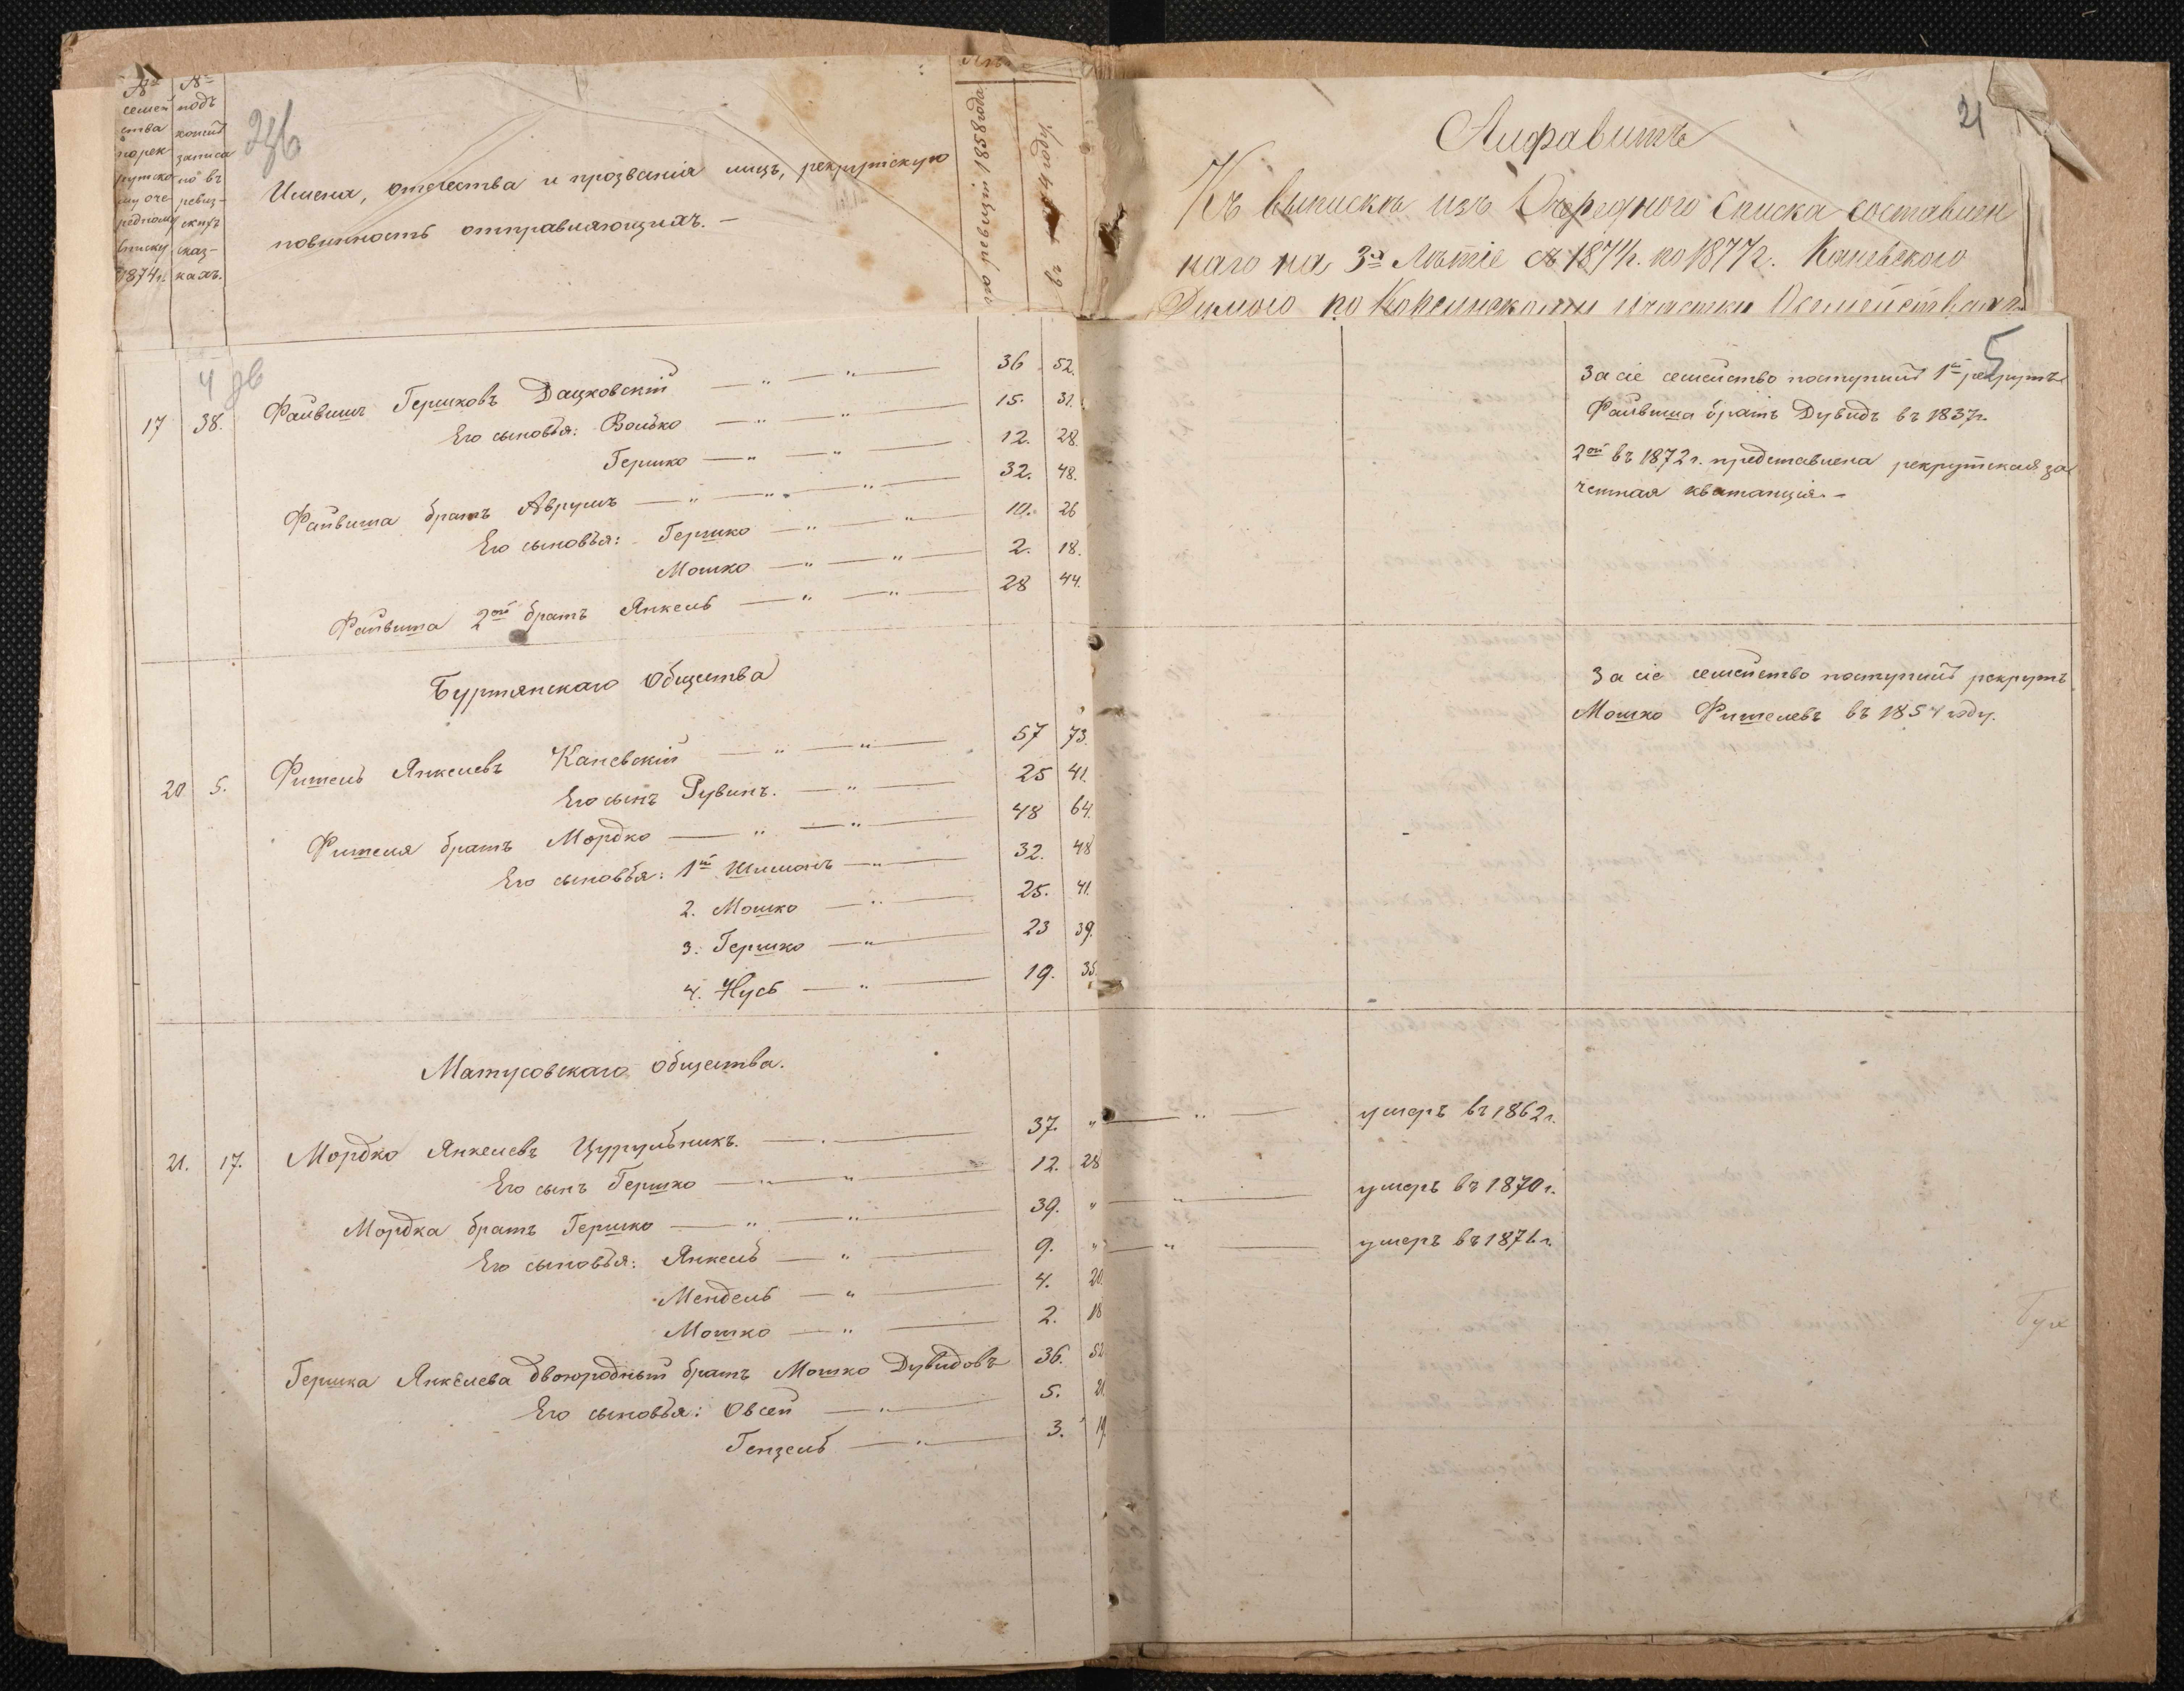 №
семей
ства
по рек
рутско
му оче
редному
списку
1874 г.
№
подъ
коимъ
записа
но въ
ревиз-
скихъ
сказ-
кахъ.
Имена, отечества и прозванія лицъ, рекрутскую
повинность отправляющихъ. —
по ревизіи 1858 года
въ 1874 году
21
Алфавитъ
Къ выпискѣ изъ Очереднаго списка составлен
наго на 3х лѣтіе съ 1874 г. по 1877 г. Каневского
по Корсунскому участку
4 зв
5
17 38. Файвишъ Гершковъ Дацковскій — „ — „ — 36 52.
Его сыновья: Волько — „ — „ — 15. 31.
Гершко — „ — „ — 12. 28.
Файвиша братъ Аврумъ — „ — „ — „ — 32. 48.
Его сыновья: Гершко — „ — „ — 10. 26
Мошко — „ — „ — 2. 18.
Файвиша 2ой братъ Янкель — „ — „ — 28 44.
За сіе семейство поступилъ 1й рекрутъ
Файвиша братъ Дувидъ въ 1837 г.
2ой въ 1872 г. представлена рекрутская за
четная квитанція. —
Буртянскаго Общества
20. 5. Фишель Янкелевъ Каневскій — „ — „ — 57 73.
Его сынъ Рувинъ. — „ — 25 41.
Фишеля братъ Мордко — „ — „ — 48 64.
Его сыновья: 1й Шимонъ — „ — 32. 48
2. Мошко — „ — 25. 41.
3. Гершко — „ — 23 39.
4. Нусь — „ — 19. 35.
За сіе семейство поступилъ рекрутъ
Мошко Фишелевъ въ 1854 году.
Матусовскаго Общества.
21. 17. Мордко Янкелевъ Цурульникъ. — „ — 37. „ — „ — умеръ въ 1862 г.
Его сынъ Гершко — „ — „ — 12. 28
Мордка братъ Гершко — „ — „ — 39. „ — „ — умеръ въ 1870 г.
Его сыновья: Янкель — „ — 9. „ — „ — умеръ въ 1871 г.
Мендель — „ — 4. 20.
Мошко — „ — 2. 18
Гершка Янкелева двоюродный братъ Мошко Дувидовъ 36. 52
Его сыновья: Овсей — „ — 5. 21.
Гензель — „ — 3. 19.